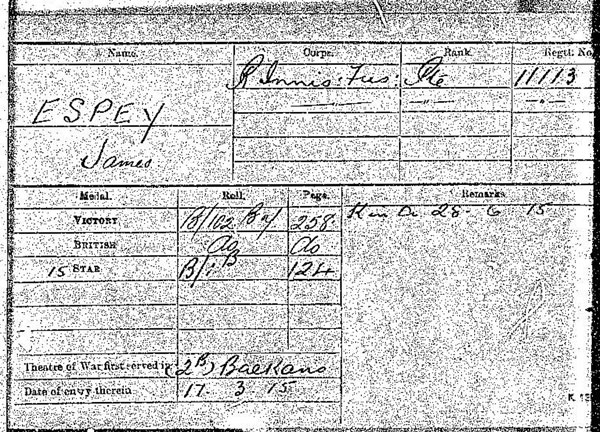 Name. Corps. Rank. Regtl. No.
ESPEY R Innis: Fus: Pte 11113
James. —"— —"— —"—
Medal. Roll. Page. Remarks.
VICTORY B/102 B 258 K in A 28 - 6 15
BRITISH do do
15 STAR B/1 B 124
Theatre of War first served in (2B) Balkans
Date of entry therein 17. 3 15